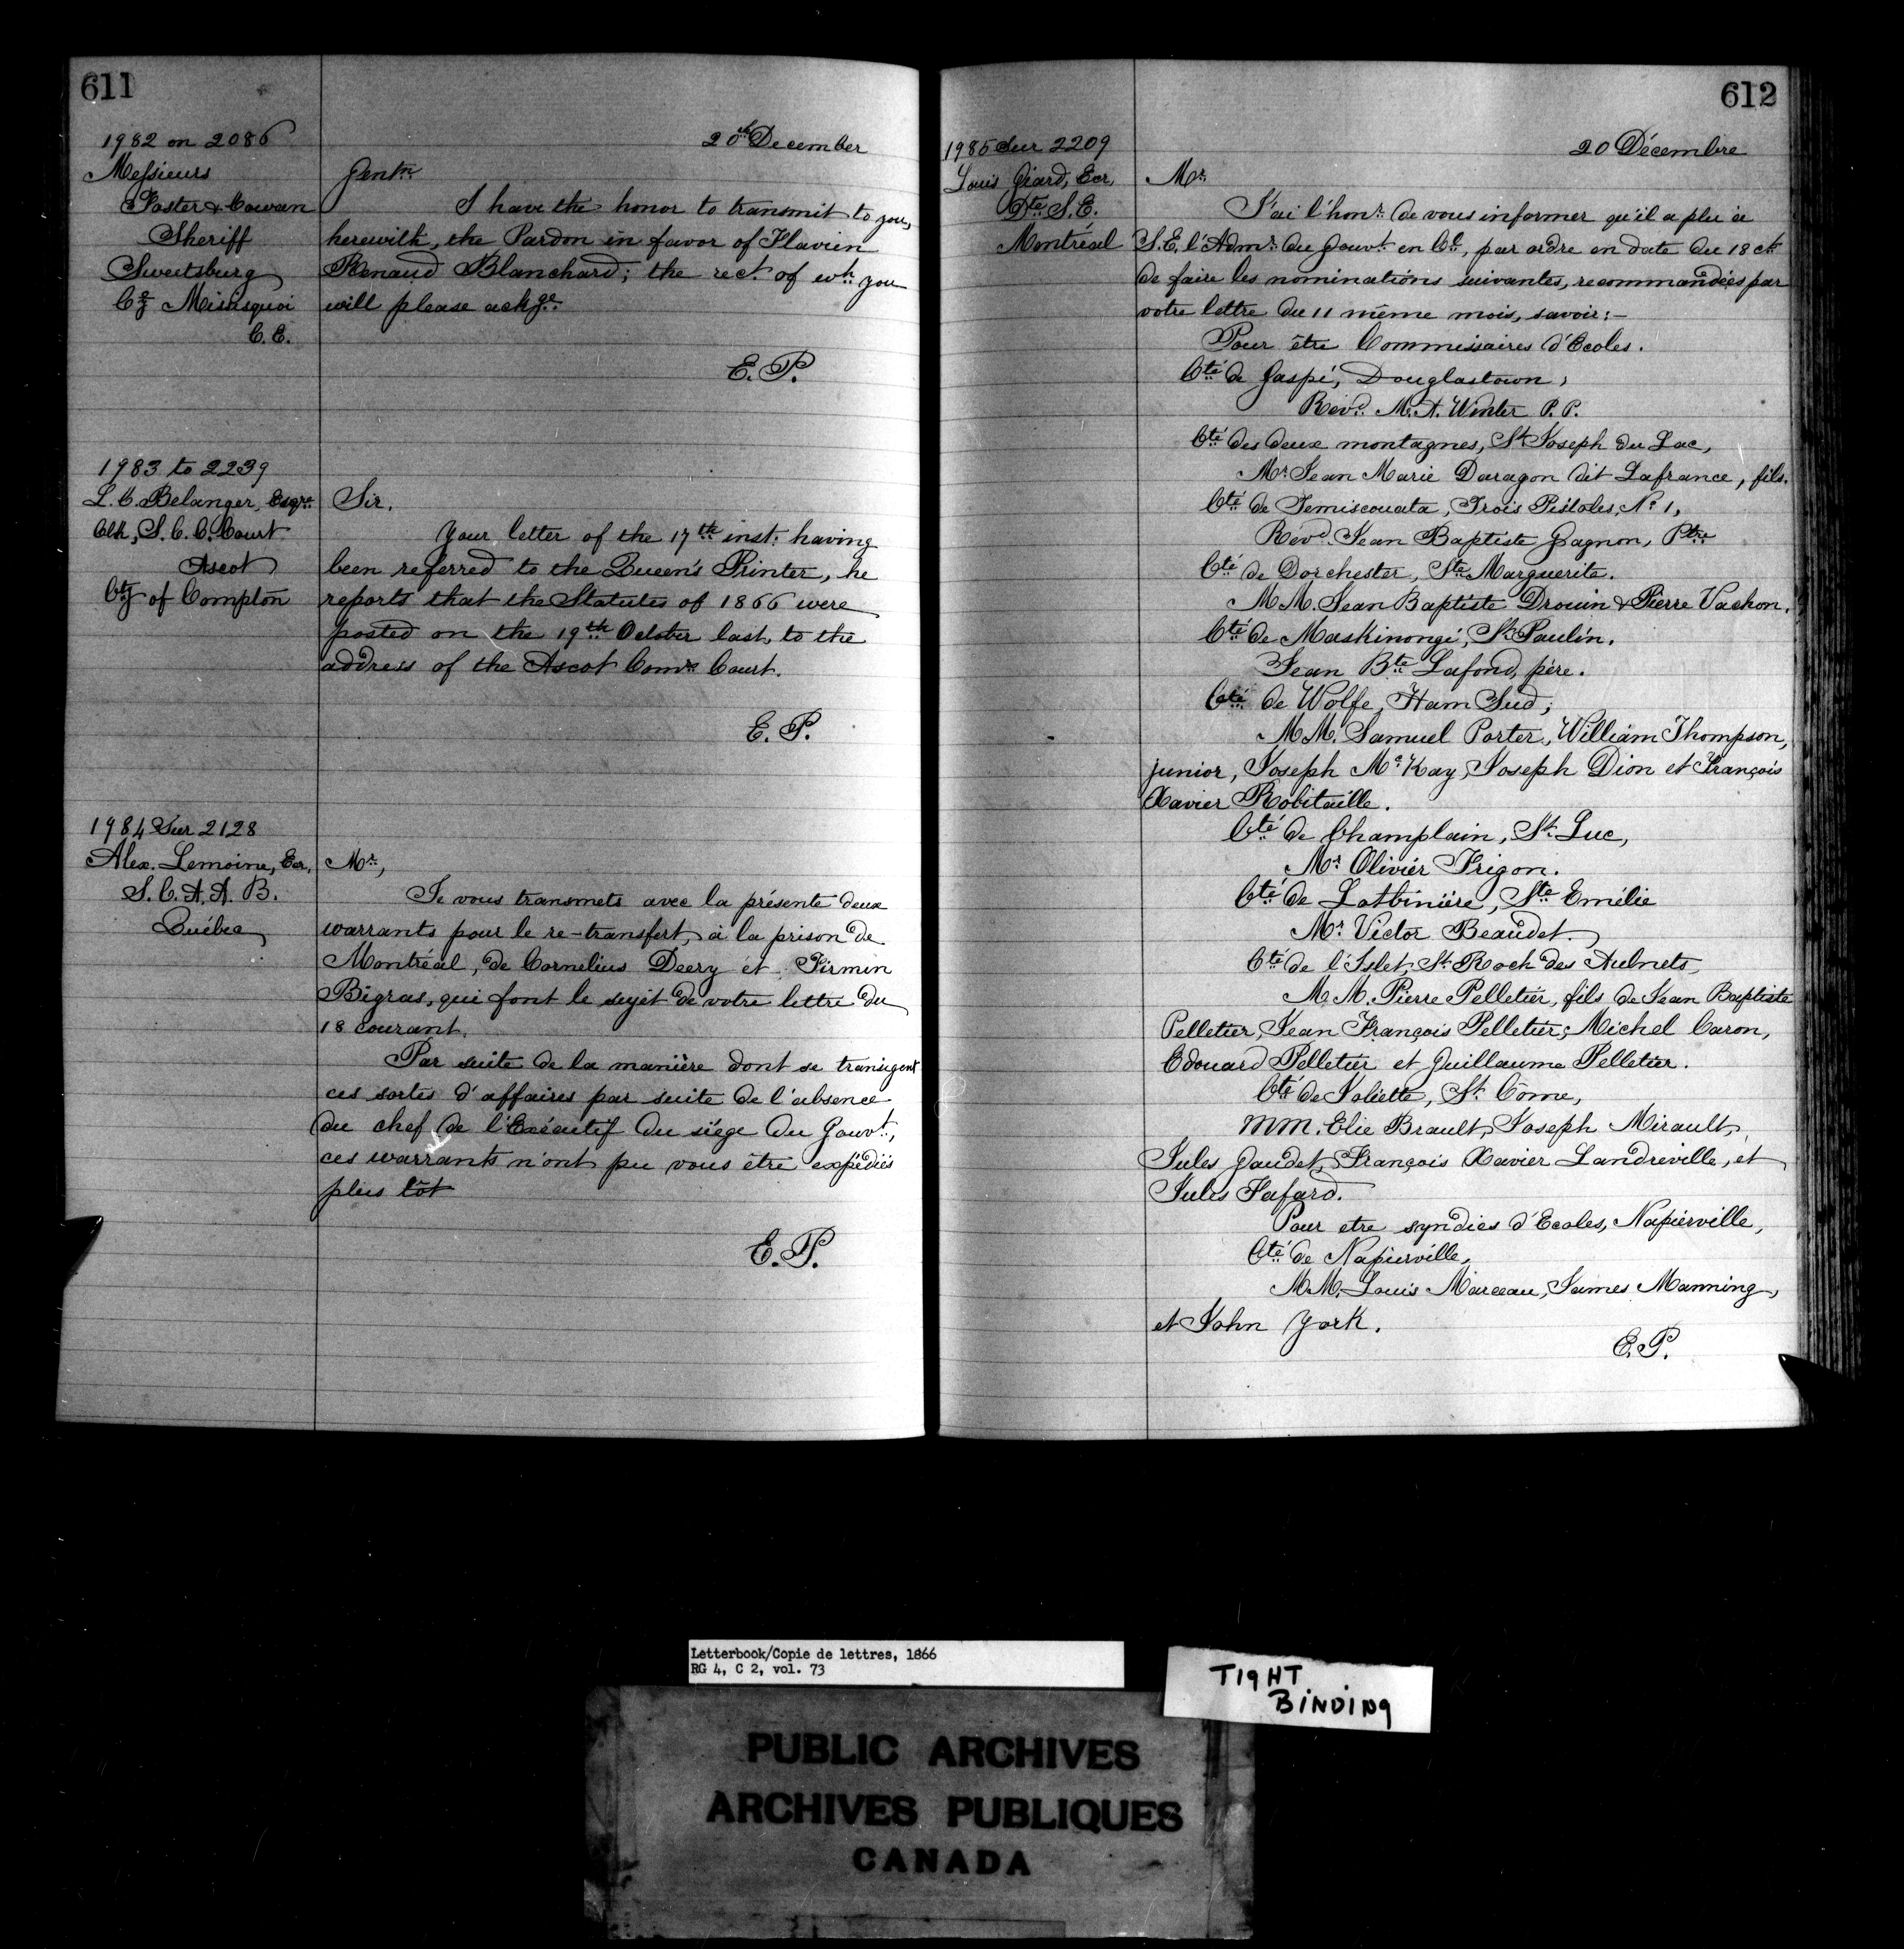 611
1982 on 2086
20th December
Messieurs
Foster & Cowan
Sheriff
Sweetsburg
Cy Missisquoi
C.E.
Gentn
I have the honor to transmit to you,
herewith, the Pardon in favor of Flavien
Renaud Blanchard; the rect of wh you
will please ackge
E.P.
1983 to 2239
L. C. Belanger, Esqre
Clk, S. C. C. Court
Ascot
Cty of Compton
Sir.
Your letter of the 17th inst: having
been referred to the Queen's Printer, he
reports that the Statutes of 1866 were
posted on the 19th October last, to the
address of the Ascot Comrs Court.
E.P.
1984 Sur 2128
Alex. Lemoine, Ecr,
S.C.A.A.B.
Québec
Mr,
Je vous transmets avec la présente deux
warrants pour le re-transfert, à la prison de
Montréal, de Cornelius Deery et Firmin
Bigras, qui font le sujet de votre lettre du
18 courant.
Par suite de la manière dont se transigent
ces sortes d'affaires par suite de l'absence
du chef de l'Exécutif du siége du Gouvt,
ces warrants n'ont pu vous être expédiés
plus tôt
E.P.
612
1985 Sur 2209
20 Décembre
Louis Giard, Ecr,
Dte S.E.
Montréal
Mr
J'ai l'honr de vous informer qu'il a plu à
S.E. l'Admr du Gouvt en Cl, par ordre en date du 18 ct
de faire les nominations suivantes, recommandées par
votre lettre du 11 même mois, savoir:—
Pour être Commissaires d'Ecoles.
Cté de Gaspé, Douglastown,
Revd. M. A. Winter P. P.
Cté des deux montagnes, St Joseph du Lac,
Mr Jean Marie Daragon dit Lafrance, fils.
Cté de Temiscouata, Trois Pistoles, No 1,
Revd. Jean Baptiste Gagnon, Ptre
Cté de Dorchester, Ste Marguerite.
MM. Jean Baptiste Drouin & Pierre Vachon.
Cté de Maskinongé, St Paulin.
Jean Bte Lafond, père.
Cté de Wolfe, Ham Sud,
MM. Samuel Porter, William Thompson,
junior, Joseph McKay, Joseph Dion et François
Xavier Robitaille.
Cté de Champlain, St. Luc,
Mr Olivier Frigon.
Cté de Lotbinière, Ste Emélie
Mr Victor Beaudet.
Cté de l'Islet, St Roch des Aulnets,
MM. Pierre Pelletier, fils de Jean Baptiste
Pelletier, Jean François Pelletier, Michel Caron,
Edouard Pelletier et Guillaume Pelletier.
Cté de Joliette, St. Côme,
MM. Elie Brault, Joseph Mirault,
Jules Gaudet, François Xavier Landreville, et
Jules Fafard.
Pour etre syndics d'Ecoles, Napierville,
Cté de Napierville,
MM. Louis Marceau, James Manning,
et John York.
E.P.
Letterbook/Copie de lettres, 1866
RG 4, C 2, vol. 73
TIGHT
BINDING
PUBLIC ARCHIVES
ARCHIVES PUBLIQUES
CANADA